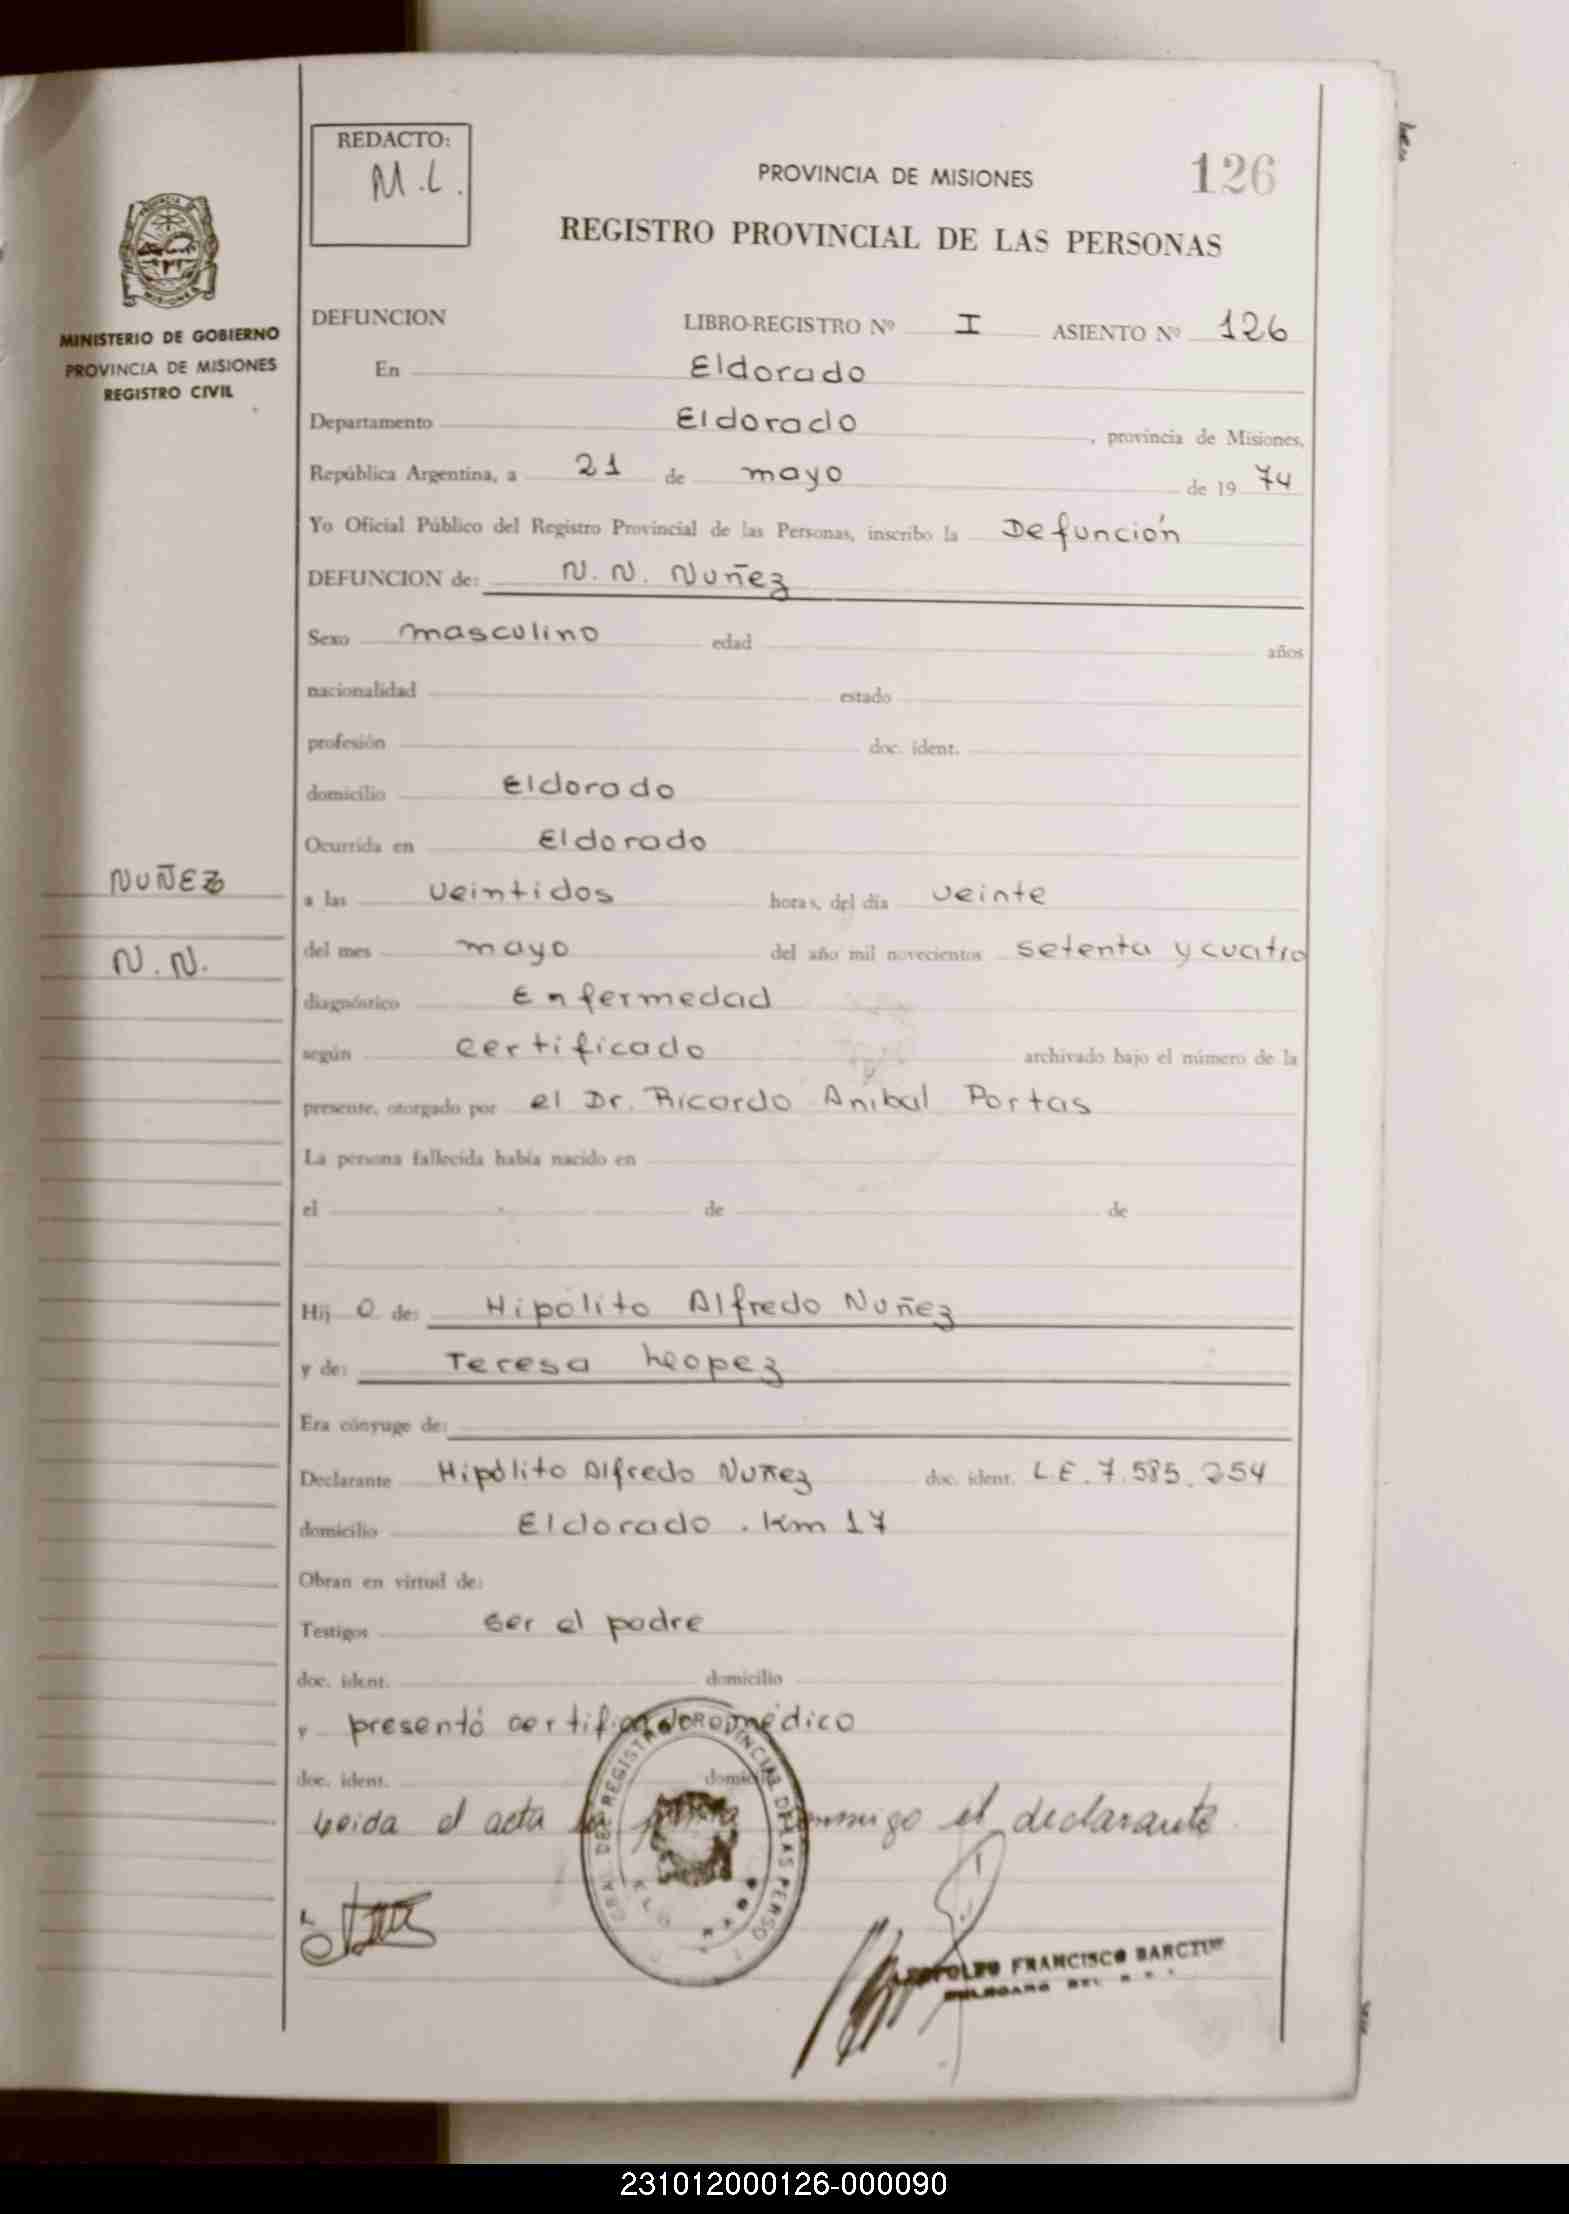 REDACTO:
M.L.
PROVINCIA DE MISIONES
126
REGISTRO PROVINCIAL DE LAS PERSONAS
MISIONES
MINISTERIO DE GOBIERNO
PROVINCIA DE MISIONES
REGISTRO CIVIL
DEFUNCION LIBRO-REGISTRO Nº I ASIENTO Nº 126
En Eldorado
Departamento Eldorado, provincia de Misiones,
República Argentina, a 21 de mayo de 1974
Yo Oficial Público del Registro Provincial de las Personas, inscribo la Defunción
DEFUNCION de: N. N. Nuñez
Sexo masculino edad años
nacionalidad estado
profesión doc. ident.
domicilio Eldorado
Ocurrida en Eldorado
NUÑEZ
a las veintidos horas, del día veinte
N. N.
del mes mayo del año mil novecientos setenta y cuatro
diagnóstico Enfermedad
según certificado archivado bajo el número de la
presente, otorgado por el Dr. Ricardo Anibal Portas
La persona fallecida había nacido en
el de de
Hijo de: Hipólito Alfredo Nuñez
y de: Teresa Leopez
Era cónyuge de:
Declarante Hipólito Alfredo Nuñez doc. ident. L.E. 7.585.254
domicilio Eldorado . Km 17
Obran en virtud de:
Testigos ser el padre
doc. ident. domicilio
y presentó certificado médico
doc. ident. domicilio
Leida el acta la firma conmigo el declarante.
DEL REGISTRO PROVINCIAL DE LAS PERSO
LEOPOLDO FRANCISCO
231012000126-000090